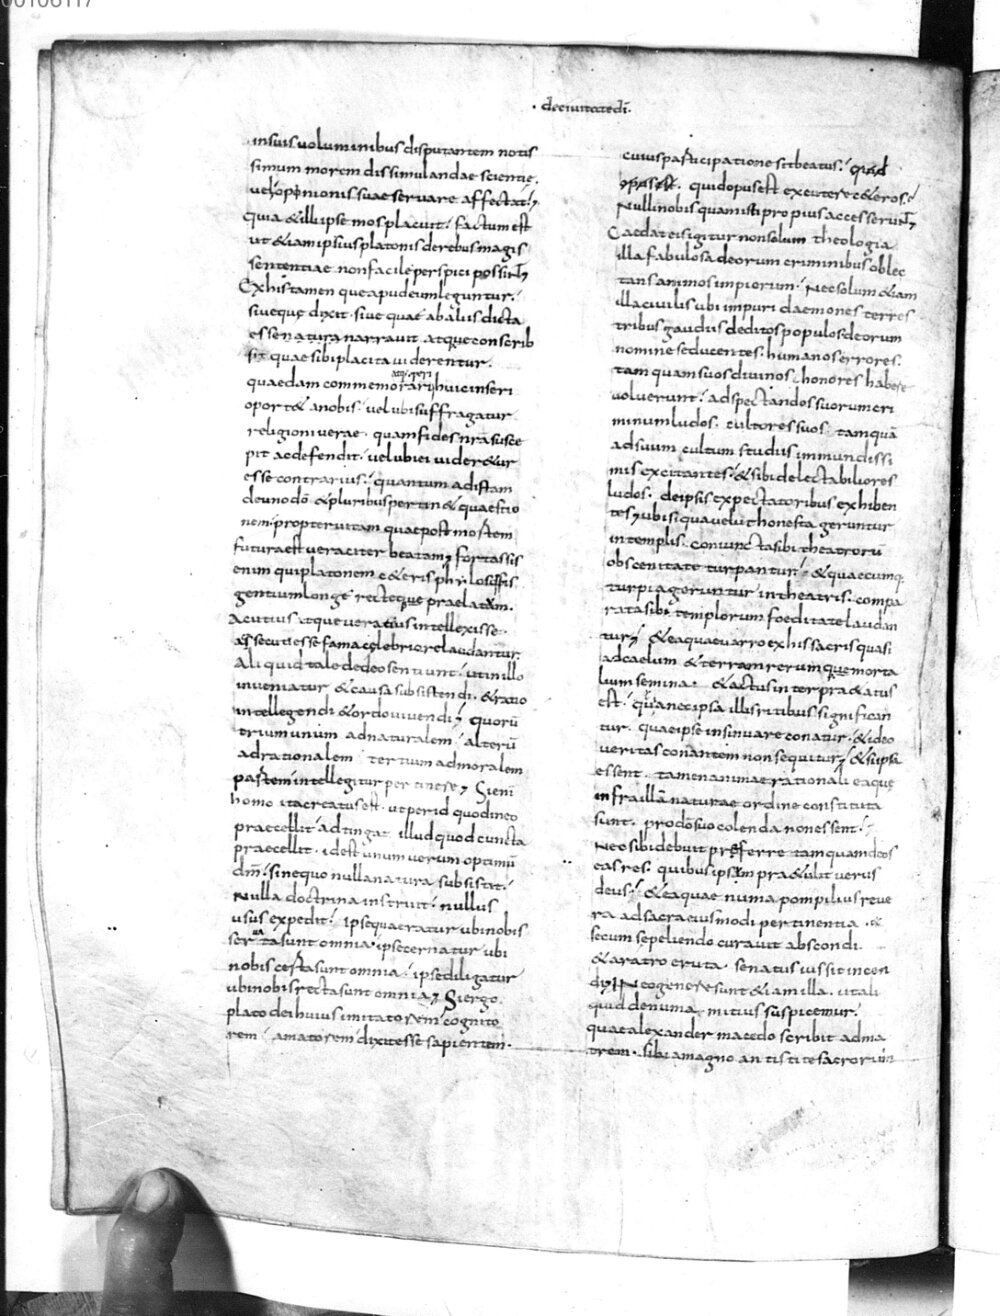 00106117
· deciuitatedi ·
insuis uoluminibus disputantem notis
simum morem dissimulandae scientie,
uel opinionis suae seruare affectat;
quia & illi ipse mos placuit; factum est
ut & iam ipsius platonis derebus magis
sententiae non facile perspici possint;
Ex his tamen que apud eum leguntur;
siue que dixit · siue quae ab aliis dicta
esse natura narrauit atque conscrib
sit quae sibi placita uiderentur ·
quaedam commemorari huic inseri
oport& a nobis · uel ubi suffragatur
religioni uerae · quam fides nra susce
pit ac defendit · uel ubi ei uider& ur
esse contrarius; quantum ad istam
de uno dō & pluribus pertin& quaestio
nem propter uitam quae post mortem
futura est ueraciter beatam; fortassis
enim qui platonem c&eris philosoffis
gentium longe recteque praelatum ·
acutius atque ueratius intellexisse ·
atq; secuti esse fama celebriore laudantur ·
Aliquid tale de deo sentiunt · ut in illo
inueniatur & causa subsistendi · & ratio
intellegendi & ordo uiuendi; quorū
trium unum ad naturalem · alterū
ad rationalem tertium ad moralem
partem intellegitur pertinere; Si enī
homo ita creatus est · ut per id quod in eo
praecellit adtingat illud quod cuncta
praecellit · id est unum uerum optimū
dm̄; sine quo nulla natura subsistit;
Nulla doctrina instruit nullus
usus expedit; ipse quaeratur ubi nobis
serta sunt omnia · ipse cernatur ubi
nobis certa sunt omnia · ipse diligatur
ubi nobis recta sunt omnia; Si ergo
plato dei huius imitatorem cognito
rem amatorem dixit esse sapientem ·
cuius participatione sit beatus; quid
quid opus est excutere c&eros;
Nulli nobis quam isti propius accesserunt;
Caedat eis igitur non solum theologia
illa fabulosa deorum criminibus oblec
tans animos impiorum · Nec solum &iam
illa ciuilis ubi impuri daemones terres
tribus gaudiis deditos populos deorum
nomine seducentes · humanos errores ·
tamquam suos diuinos honores habere
uoluerunt; ad spectandos suorum cri
minum ludos · cultores suos · tamquā
ad suum cultum studiis immundissi
mis excitantes · & sibi delectabiliores
ludos · de ipsis expectatoribus exhiben
tes; ubi si qua uelut honesta geruntur
in templis · coniuncta sibi theatrorū
obscenitate turpantur; & quaecumq;
turpia geruntur in theatris · compa
rata sibi templorum foeditate laudan
tur; & ea quae uarro ex his sacris quasi
ad caelum & terram rerumque morta
lium semina · & actus interpra&atus
est · quia nec ipsa illis ritibus significan
tur · quae ipse insinuare conatur · & ideo
ueritas conantem non sequitur; & si ipsa
essent · tamen animae rationali eaque
infra illā naturae ordine constituta
sunt · pro dō suo colenda non essent;
Nec sibi debuit preferre tamquam deos
eas res · quibus ipsam pra&ulit uerus
deus; & ea quae numa pompilius reue
ra ad sacra eiusmodi pertinentia · &
secum sepeliendo curauit abscondi ·
& aratro eruta senatus iussit incen
di; In eo genere sunt & iam illa · ut ali
quid de numa mitius suspicemur;
quae alexander macedo scribit ad ma
trem · sibi a magno antistite sacrorum